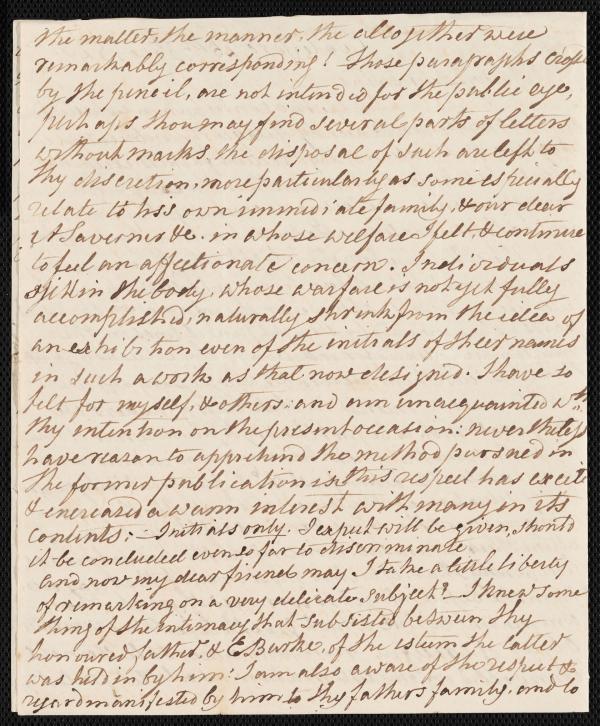 the matter, the manner, the altogether were
remarkably corresponding! Those paragraphs cross
by the pencil, are not intended for the public eye,
Perhaps thou may find several parts of letters
without marks, the disposal of such are left to
thy discretion, more particularly as some especially
relate to his own immediate family, & our dear
&c. in whose welfare I felt & continue
to feel an affectionate concern. Individuals
still in the body, whose warfare is not yet fully
accomplished, naturally shrink from the idea of
an exhibition even of the initials of their names
in such a work as that now designed. I have so
felt for myself, & others: and am unacquainted wth
thy intention on the present occasion: nevertheless
have reason to apprehend the method pursued in
the former publication in this respect has excite
& encreased a warm interest with many in its
contents: – Initials only. I expect will be given, should
it be concluded even so far to discriminate
and now my dear friend may I take a little liberty
of remarking on a very delicate subject? – I knew some
thing of the intimacy that subsisted between thy
honoured father, & E Burke, of the esteem the latter
was held in by him: I am also aware of the respect &
regard manifested by him to thy fathers family, and to